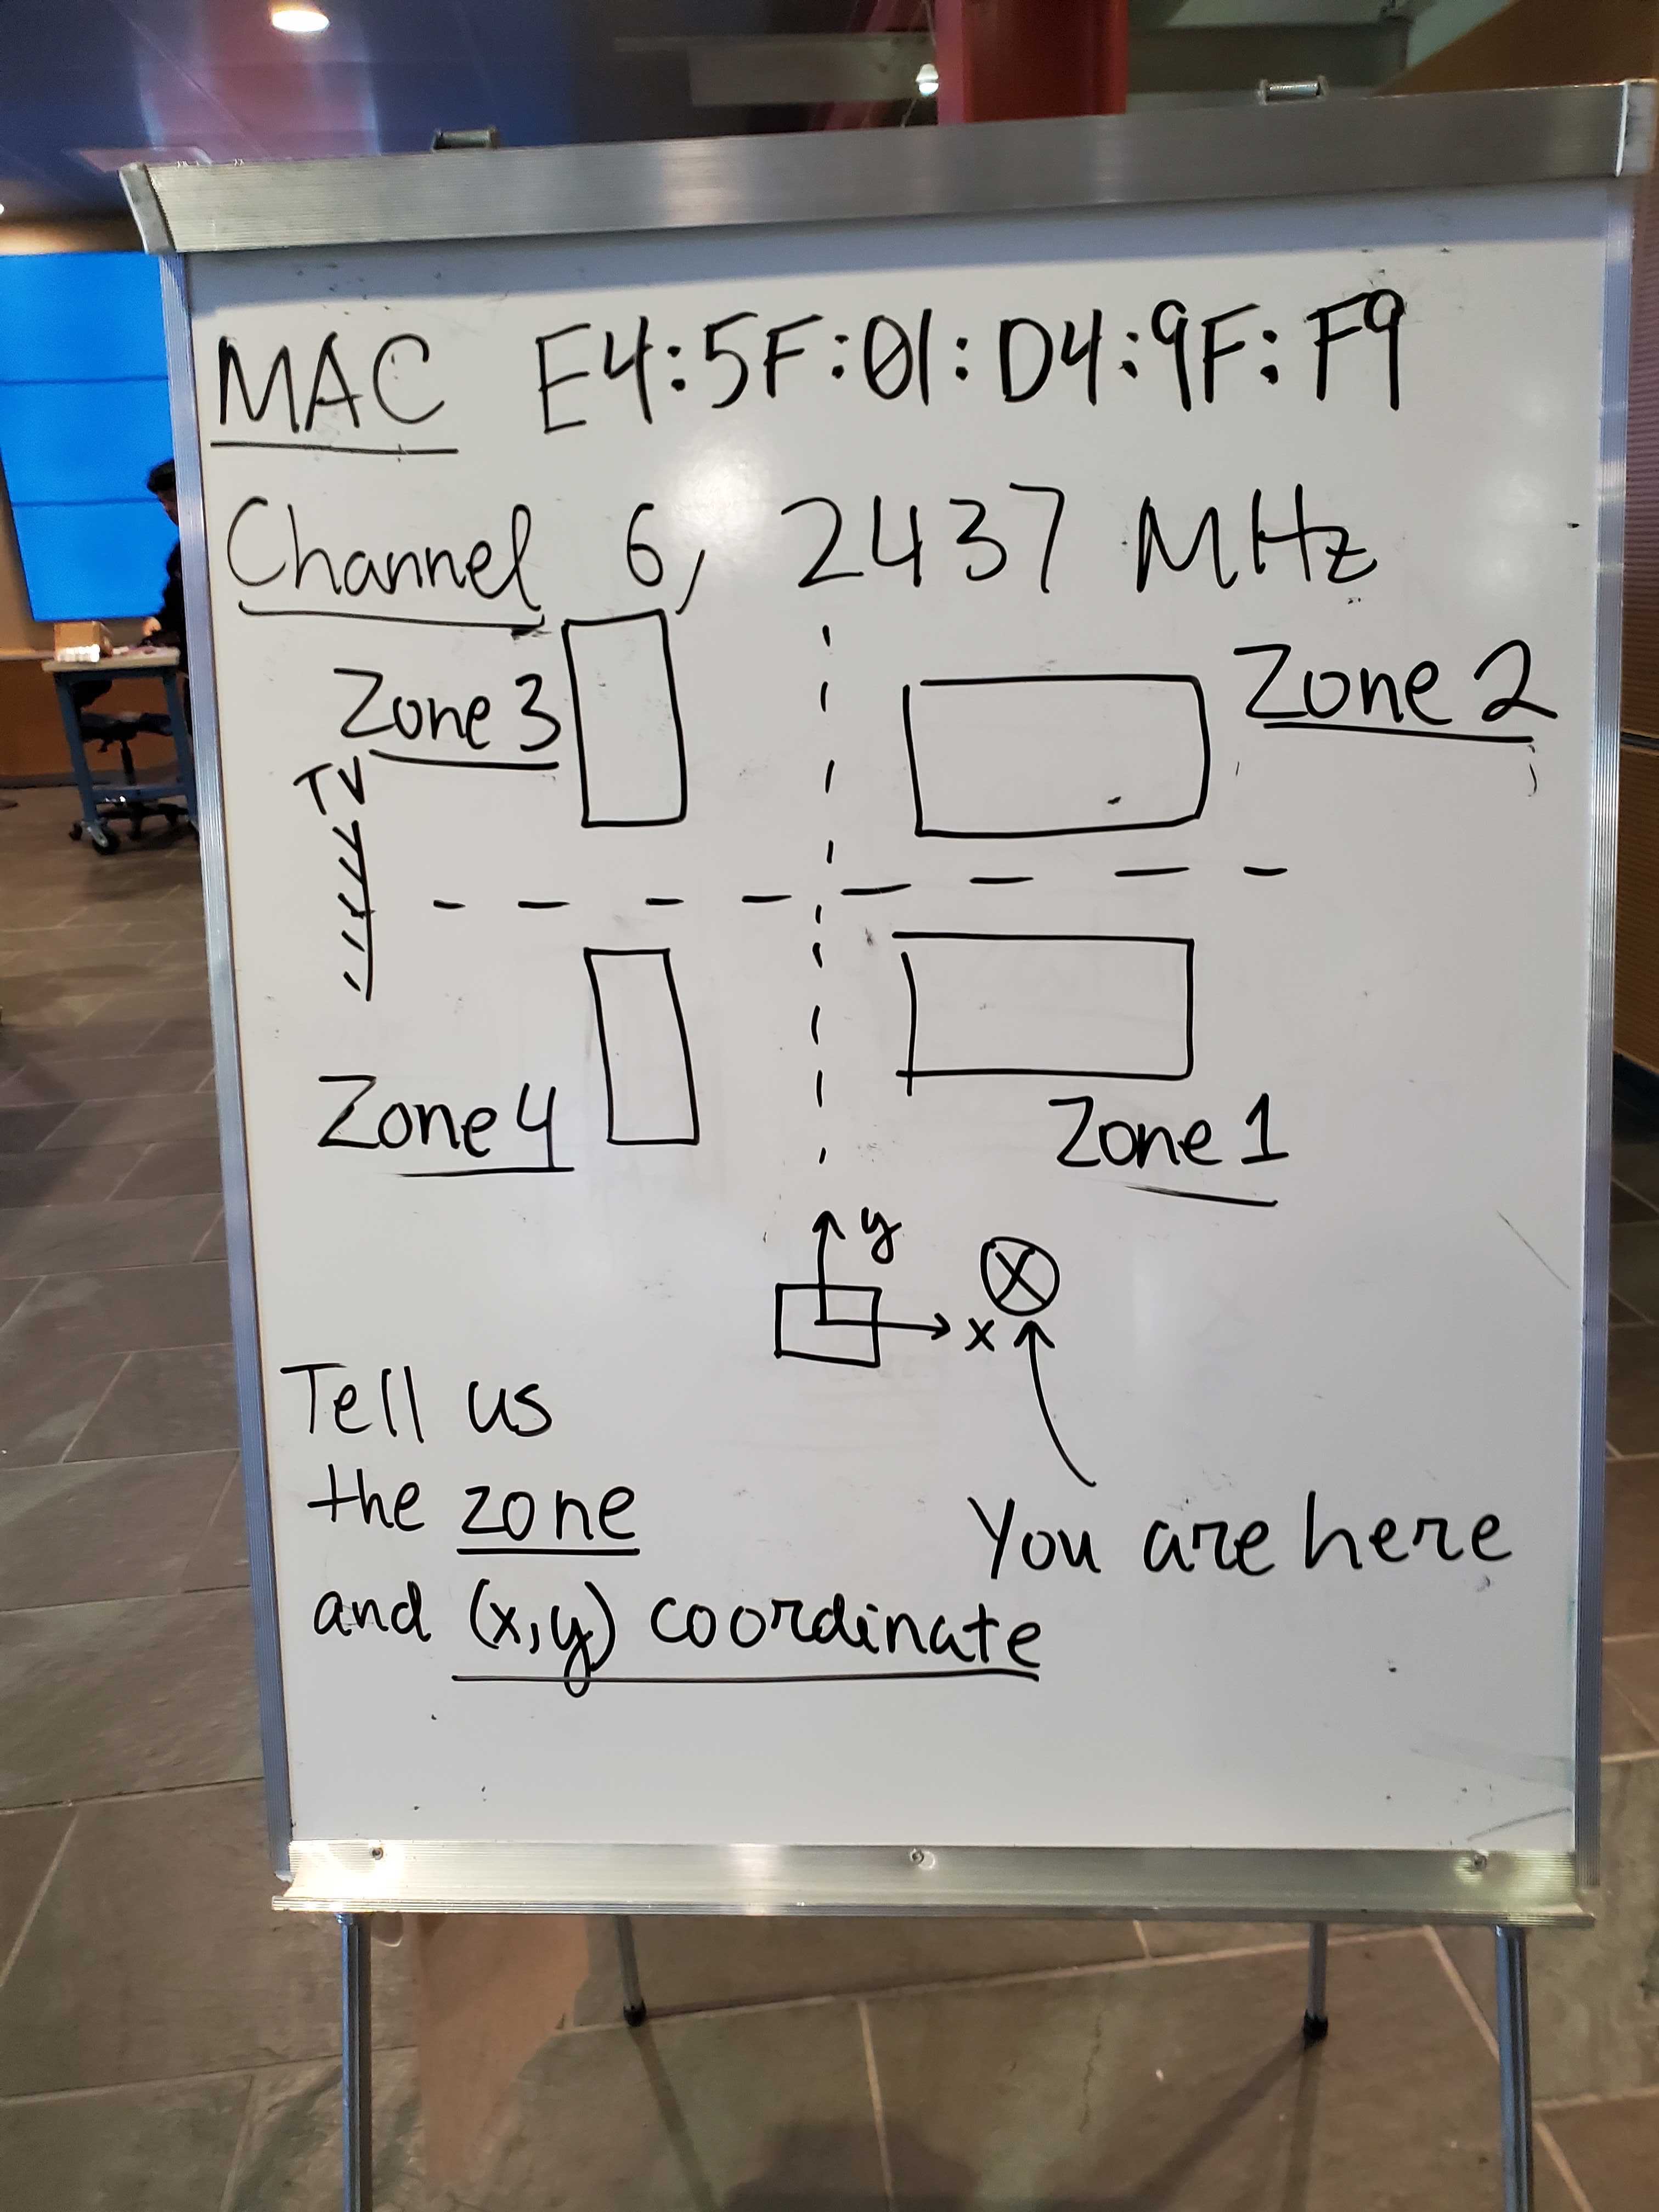 MAC E4:5F:01:D4:9F:F9
Channel 6, 2437 MHz
Zone 3
Zone 2
TV
Zone 4
Zone 1
y
x
Tell us
the zone
and (x,y) coordinate
You are here